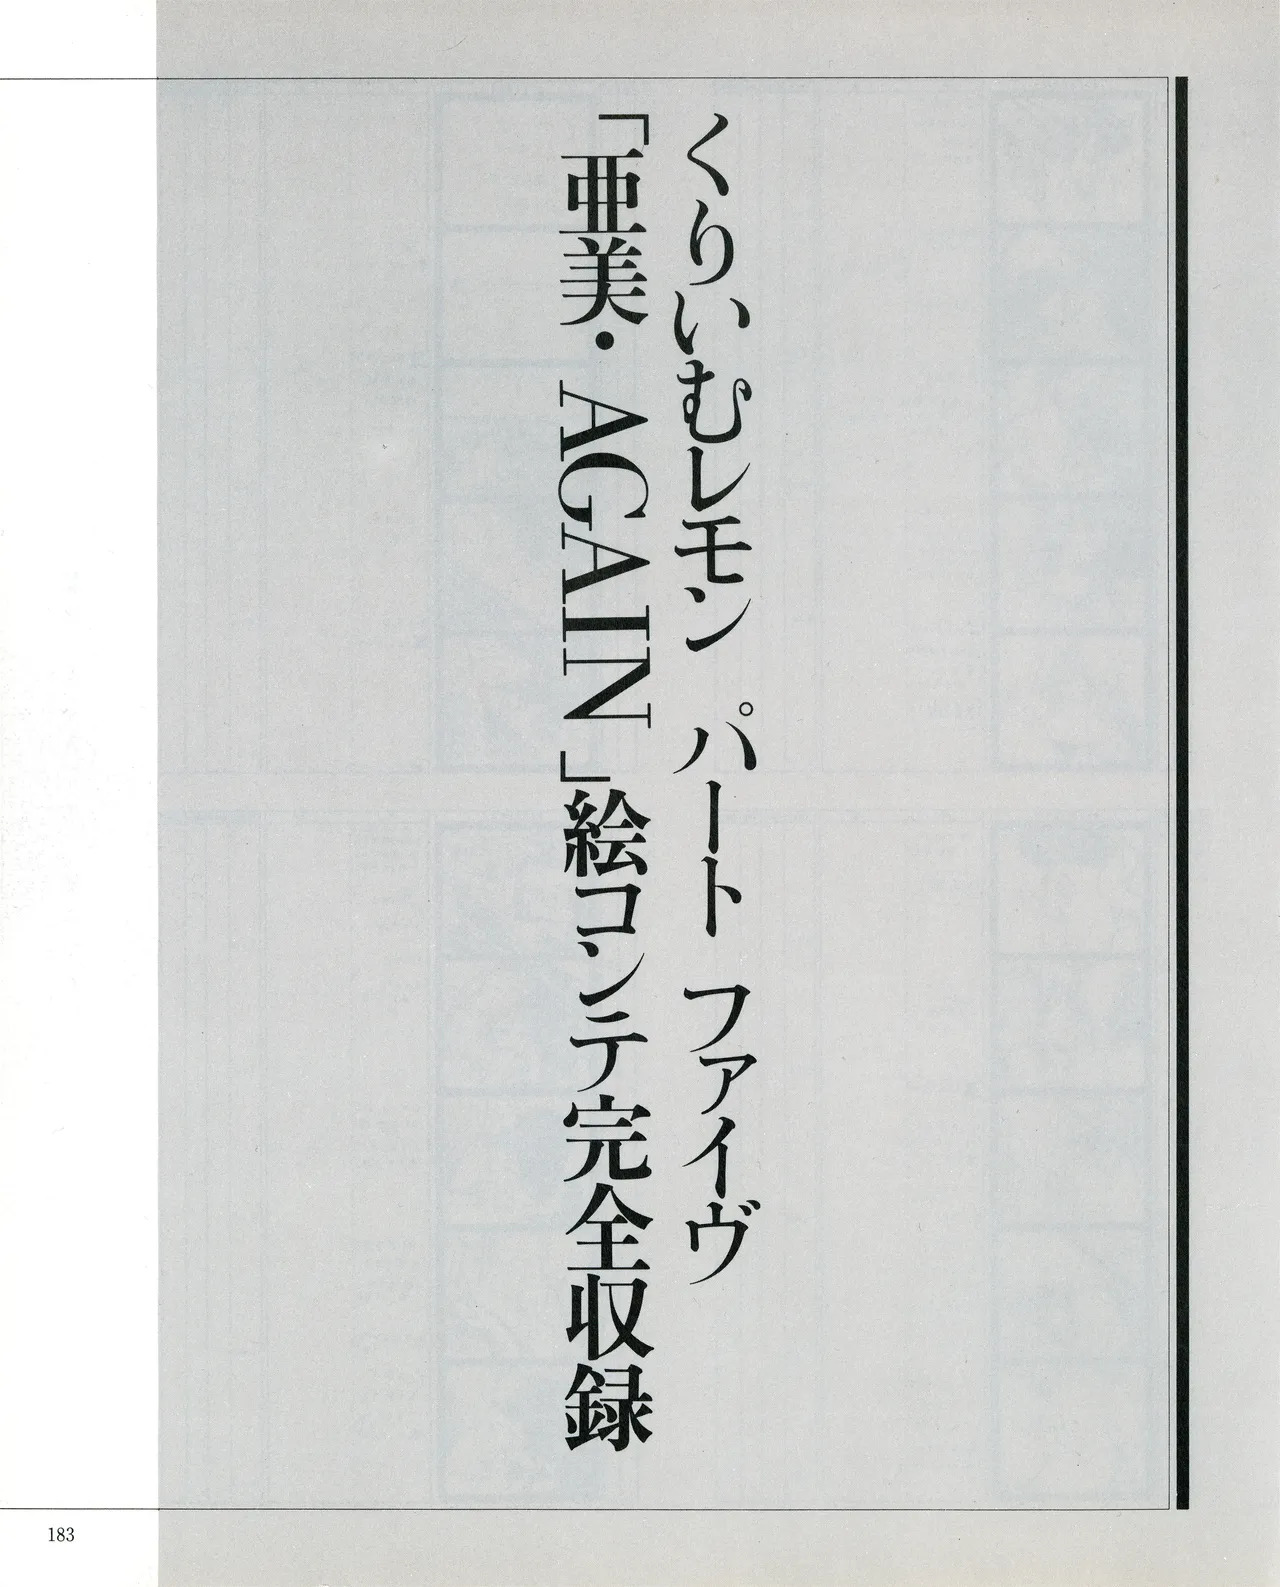 くりいむレモン パート ファイヴ
「亜美・AGAIN」絵コンテ完全収録
183